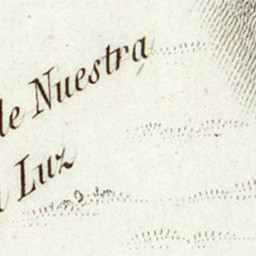 de Nuestra
a Luz